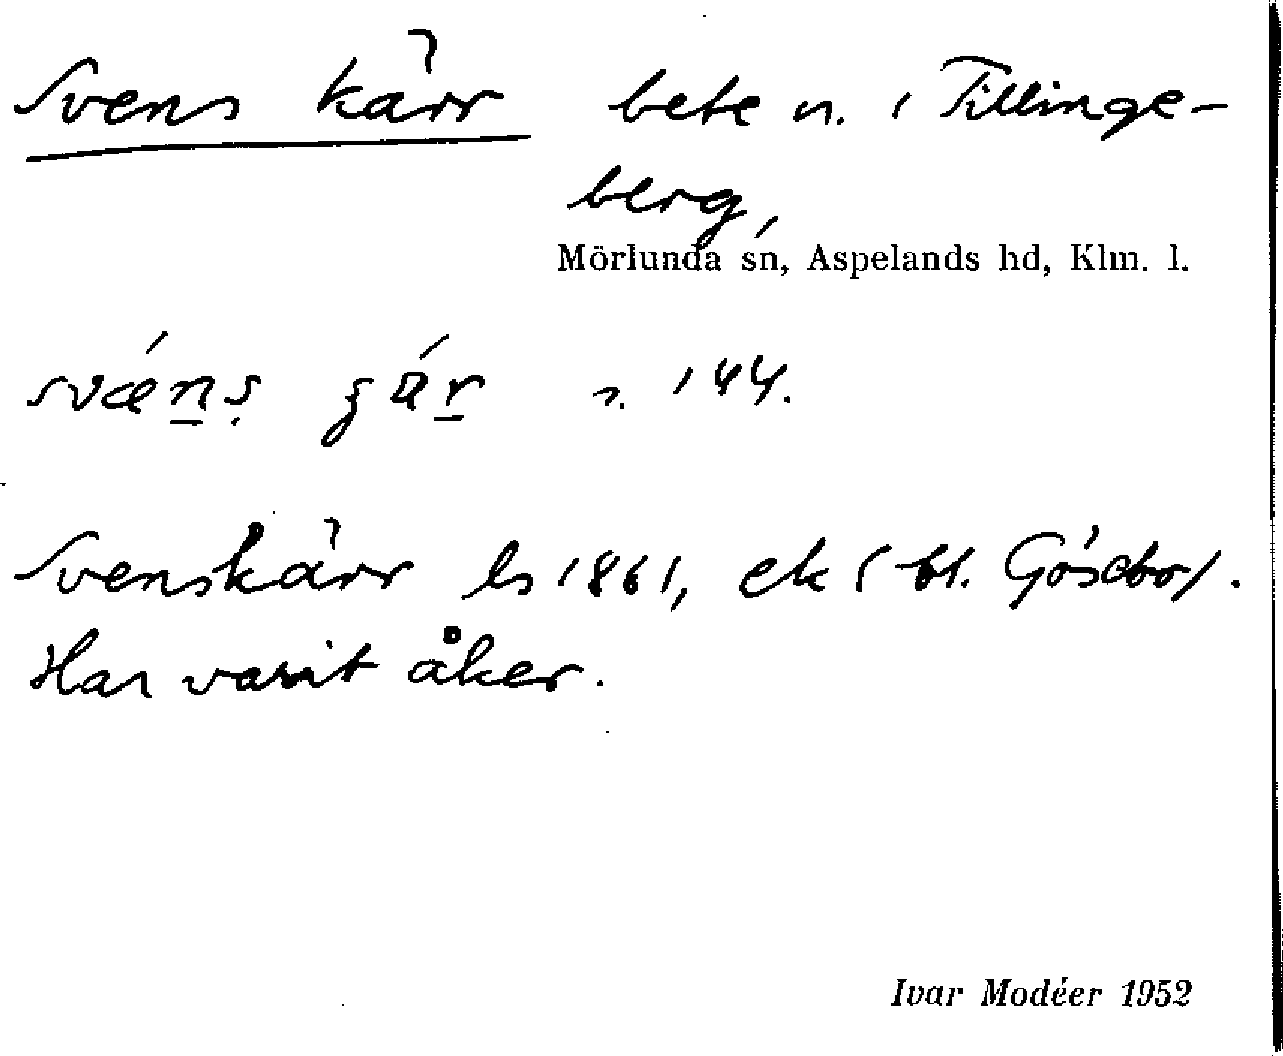 Svens kärr bete n. i Tillinge-
berg,
Mörlunda sn, Aspelands hd, Klm. l.
n. 144.
Svenskärr ls 1861, ek (bl.
Har varit åker.
Ivar Modéer 1952